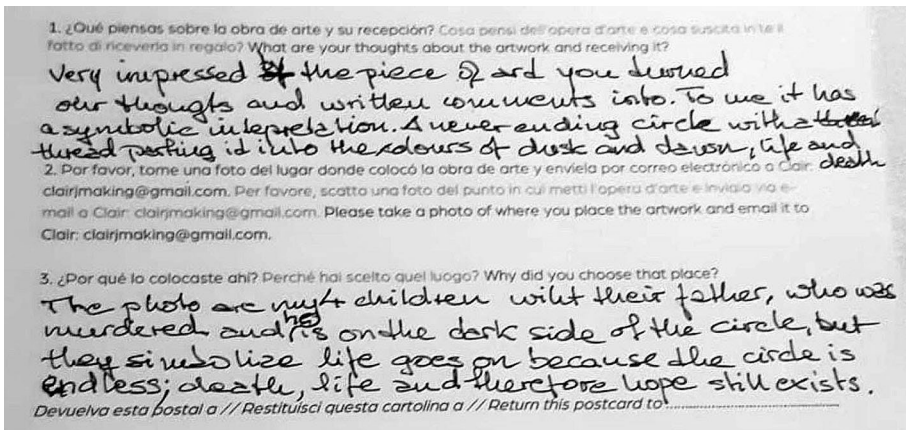 1. ¿Qué piensas sobre la obra de arte y su recepción? Cosa pensi dell'opera d'arte e cosa suscita in te il
fatto di riceverla in regalo? What are your thoughts about the artwork and receiving it?
Very impressed the piece of ard you turned
our thougts and written comments into. To me it has
a symbolic intepretation. A never ending circle with a
thread parting id into the colours of dusk and dawn, life and
death
2. Por favor, tome una foto del lugar donde colocó la obra de arte y envíela por correo electrónico a Clair:
clairjmaking@gmail.com. Per favore, scatta una foto del punto in cui metti l'opera d'arte e inviala via e-
mail a Clair: clairjmaking@gmail.com. Please take a photo of where you place the artwork and email it to
Clair: clairjmaking@gmail.com.
3. ¿Por qué lo colocaste ahí? Perché hai scelto quel luogo? Why did you choose that place?
The photo are my 4 children wiht their father, who was
murdered and he is on the dark side of the circle, but
they simbolize life goes on because the circle is
endless; death, life and therefore hope still exists.
Devuelva esta postal a // Restituisci questa cartolina a // Return this postcard to